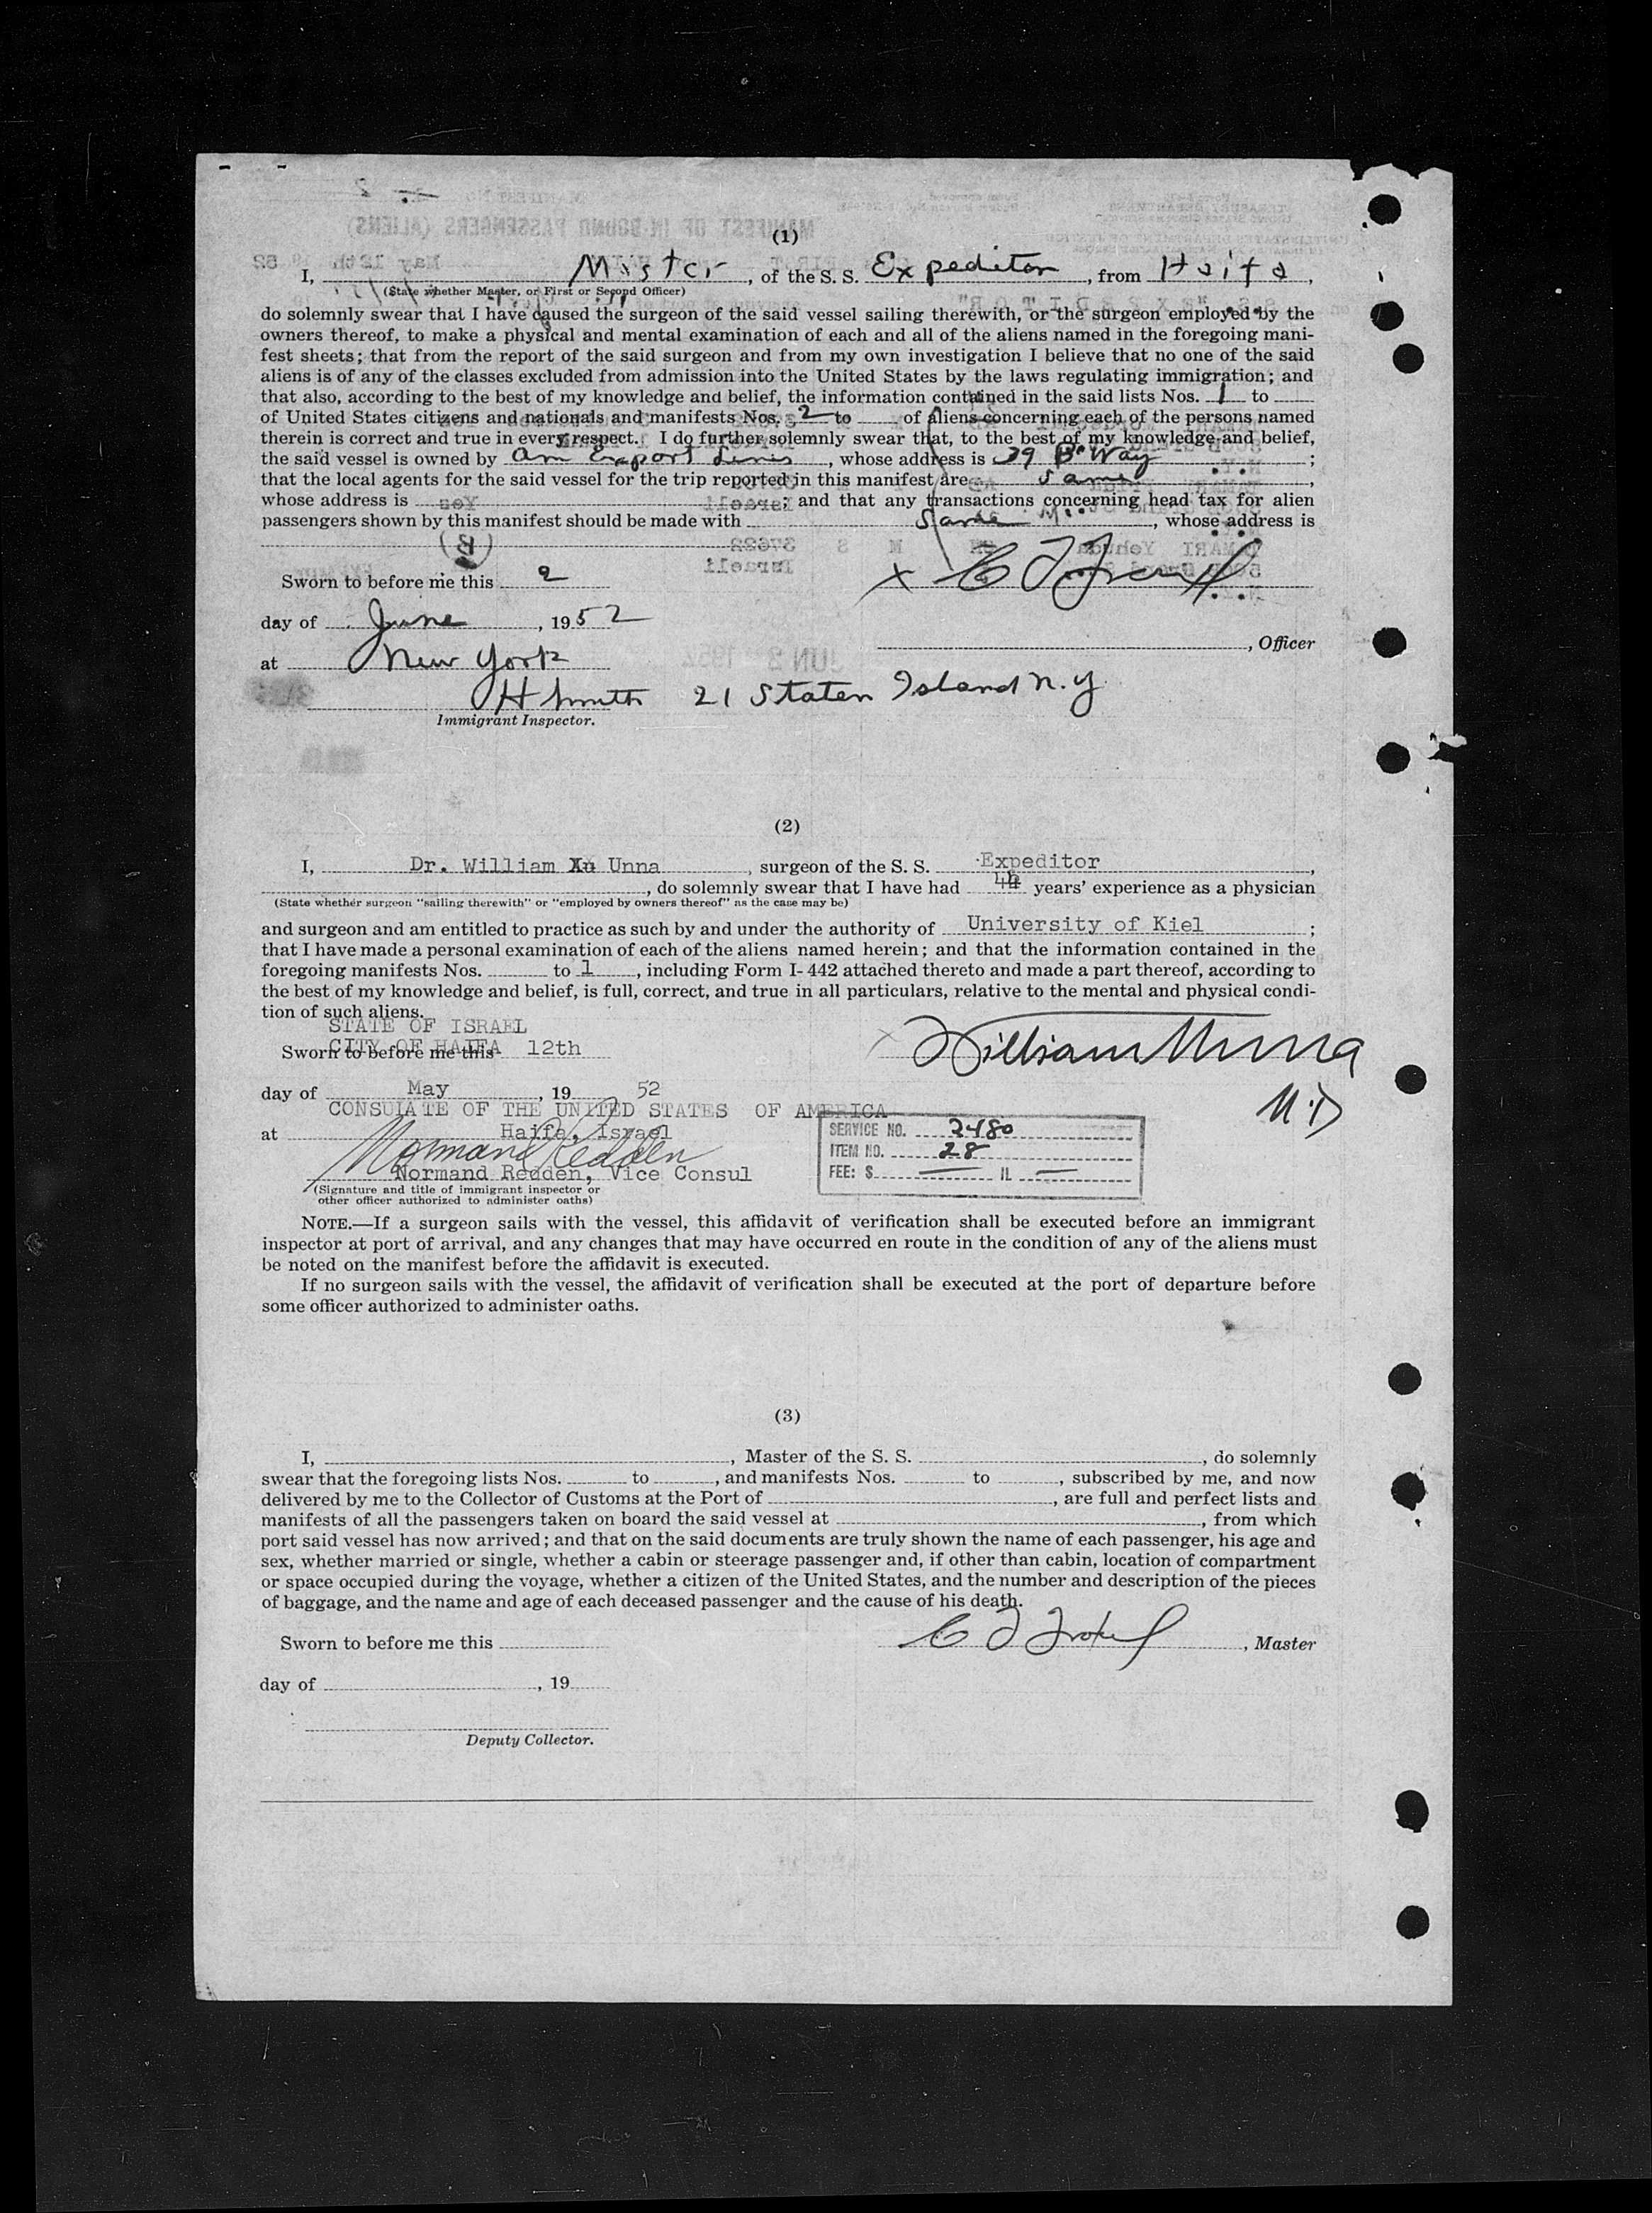 (1)
I, Master, of the S. S. Expeditor, from Haifa,
(State whether Master, or First or Second Officer)
do solemnly swear that I have caused the surgeon of the said vessel sailing therewith, or the surgeon employed by the
owners thereof, to make a physical and mental examination of each and all of the aliens named in the foregoing mani-
fest sheets; that from the report of the said surgeon and from my own investigation I believe that no one of the said
aliens is of any of the classes excluded from admission into the United States by the laws regulating immigration; and
that also, according to the best of my knowledge and belief, the information contained in the said lists Nos. 1 to
of United States citizens and nationals and manifests Nos. 2 to of aliens concerning each of the persons named
therein is correct and true in every respect. I do further solemnly swear that, to the best of my knowledge and belief,
the said vessel is owned by Am Export Lines, whose address is 39 B'Way;
that the local agents for the said vessel for the trip reported in this manifest are Same,
whose address is ; and that any transactions concerning head tax for alien
passengers shown by this manifest should be made with Same, whose address is
Sworn to before me this 2
day of June, 1952
, Officer
at New York
H Smith 21 Staten Island N.Y
Immigrant Inspector.
(2)
I, Dr. William Unna, surgeon of the S. S. Expeditor,
, do solemnly swear that I have had 44 years' experience as a physician
(State whether surgeon "sailing therewith" or "employed by owners thereof" as the case may be)
and surgeon and am entitled to practice as such by and under the authority of University of Kiel;
that I have made a personal examination of each of the aliens named herein; and that the information contained in the
foregoing manifests Nos. to 1, including Form I-442 attached thereto and made a part thereof, according to
the best of my knowledge and belief, is full, correct, and true in all particulars, relative to the mental and physical condi-
tion of such aliens.
STATE OF ISRAEL
CITY OF HAIFA
Sworn to before me this 12th
William Unna
day of May, 19 52
M.D
CONSULATE OF THE UNITED STATES OF AMERICA
at Haifa, Israel
SERVICE NO. 2480
ITEM NO. 28
FEE: $ — IL —
Normand Redden
Normand Redden, Vice Consul
(Signature and title of immigrant inspector or
other officer authorized to administer oaths)
NOTE.—If a surgeon sails with the vessel, this affidavit of verification shall be executed before an immigrant
inspector at port of arrival, and any changes that may have occurred en route in the condition of any of the aliens must
be noted on the manifest before the affidavit is executed.
If no surgeon sails with the vessel, the affidavit of verification shall be executed at the port of departure before
some officer authorized to administer oaths.
(3)
I, , Master of the S. S. , do solemnly
swear that the foregoing lists Nos. to , and manifests Nos. to , subscribed by me, and now
delivered by me to the Collector of Customs at the Port of , are full and perfect lists and
manifests of all the passengers taken on board the said vessel at , from which
port said vessel has now arrived; and that on the said documents are truly shown the name of each passenger, his age and
sex, whether married or single, whether a cabin or steerage passenger and, if other than cabin, location of compartment
or space occupied during the voyage, whether a citizen of the United States, and the number and description of the pieces
of baggage, and the name and age of each deceased passenger and the cause of his death.
Sworn to before me this
, Master
day of , 19
Deputy Collector.